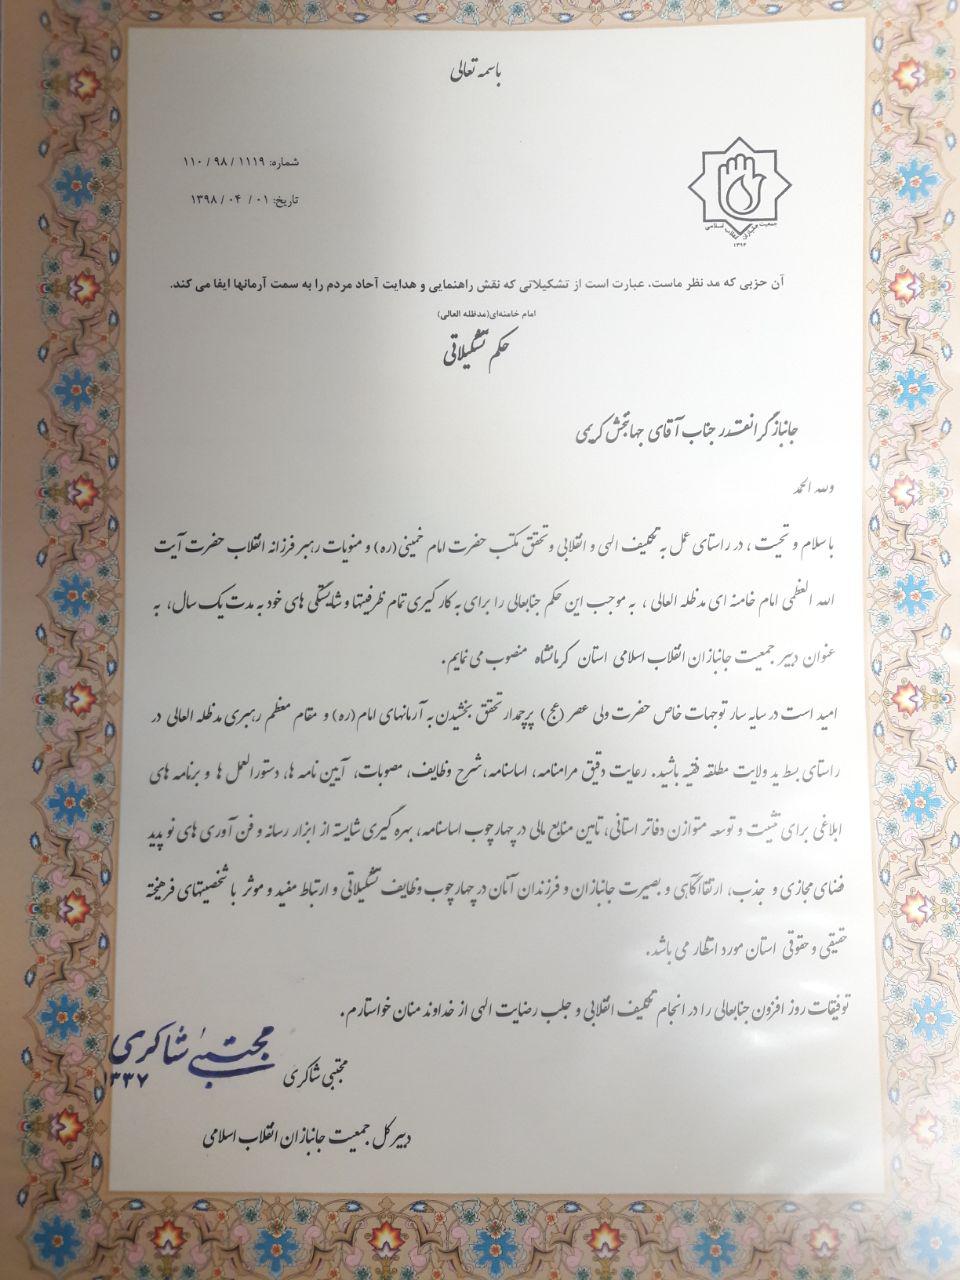 باسمه تعالی
شماره: ۱۱۱۹ / ۹۸ / ۱۱۰
تاریخ: ۰۱ / ۰۴ / ۱۳۹۸
جمعیت جانبازان انقلاب اسلامی
آن حزبی که مد نظر ماست، عبارت است از تشکیلاتی که نقش راهنمایی و هدایت آحاد مردم را به سمت آرمانها ایفا می کند.
امام خامنه‌ای(مدظله العالی)
حکم تشکیلاتی
جانباز گرانقدر جناب آقای جهانبخش کریمی
ولله الحمد
با سلام و تحیت ، در راستای عمل به تکلیف الهی و انقلابی و تحقق مکتب حضرت امام خمینی (ره) و منویات رهبر فرزانه انقلاب حضرت آیت
الله العظمی امام خامنه ای مدظله العالی ، به موجب این حکم جنابعالی را برای به کار گیری تمام ظرفیتها و شایستگی های خود به مدت یک سال، به
عنوان دبیر جمعیت جانبازان انقلاب اسلامی استان کرمانشاه منصوب می نمایم.
امید است در سایه سار توجهات خاص حضرت ولی عصر (عج) پرچمدار تحقق بخشیدن به آرمانهای امام (ره) و مقام معظم رهبری مدظله العالی در
راستای بسط ید ولایت مطلقه فقیه باشید. رعایت دقیق مرامنامه، اساسنامه، شرح وظایف، مصوبات، آیین نامه ها، دستورالعمل ها و برنامه های
ابلاغی برای تثبیت و توسعه متوازن دفاتر استانی، تامین منابع مالی در چهارچوب اساسنامه، بهره گیری شایسته از ابزار رسانه و فن آوری های نوپدید
فضای مجازی و جذب، ارتقا آگاهی و بصیرت جانبازان و فرزندان آنان در چهارچوب وظایف تشکیلاتی و ارتباط مفید و موثر با شخصیتهای فرهیخته
حقیقی و حقوقی استان مورد انتظار می باشد.
توفیقات روز افزون جنابعالی را در انجام تکلیف انقلابی و جلب رضایت الهی از خداوند منان خواستارم.
مجتبی شاکری
۱۳۳۷
مجتبی شاکری
دبیر کل جمعیت جانبازان انقلاب اسلامی